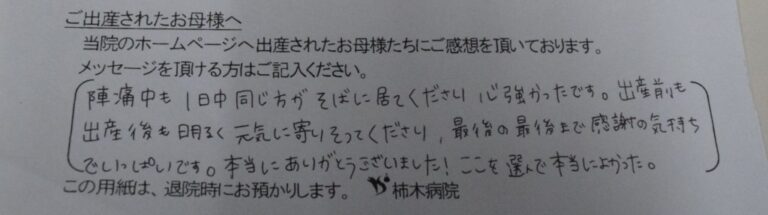 ご出産されたお母様へ
当院のホームページへ出産されたお母様たちにご感想を頂いております。
メッセージを頂ける方はご記入ください。
陣痛中も1日中同じ方がそばに居てくださり心強かったです。出産前も
出産後も明るく元気に寄りそってくださり、最後の最後まで感謝の気持ち
でいっぱいです。本当にありがとうございました!ここを選んで本当によかった。
この用紙は、退院時にお預かりします。 柿木病院